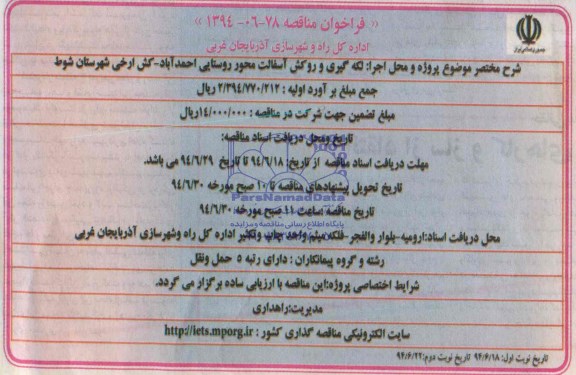 « فراخوان مناقصه ۷۸-۰۶- ۱۳۹۴ »
اداره کل راه و شهرسازی آذربایجان غربی
جمهوری اسلامی ایران
شرح مختصر موضوع پروژه و محل اجرا: لکه گیری و روکش آسفالت محور روستایی احمدآباد-کش ارخی شهرستان شوط
جمع مبلغ بر آورد اولیه : ۲/۳۹۴/۷۷۰/۲۱۲ ریال
مبلغ تضمین جهت شرکت در مناقصه : ۱۴/۰۰۰/۰۰۰ریال
تاریخ ومحل دریافت اسناد مناقصه:
مهلت دریافت اسناد مناقصه از تاریخ: ۹۴/۶/۱۸ تا تاریخ ۹۴/۶/۲۹ می باشد.
تاریخ تحویل پیشنهادهای مناقصه تا ۱۰ صبح مورخه ۹۴/۶/۳۰
تاریخ مناقصه ساعت ۱۱ صبح مورخه ۹۴/۶/۳۰
ParsNamadData
پایگاه اطلاع رسانی مناقصه و مزایده
محل دریافت اسناد:ارومیه-بلوار والفجر- فلکه میثم واحد چاپ وتکثیر اداره کل راه وشهرسازی آذربایجان غربی
رشته و گروه پیمانکاران : دارای رتبه ۵ حمل ونقل
شرایط اختصاصی پروژه:این مناقصه با ارزیابی ساده برگزار می گردد.
مدیریت:راهداری
سایت الکترونیکی مناقصه گذاری کشور : http://iets.mporg.ir
تاریخ نوبت اول: ۹۴/۶/۱۸ تاریخ نوبت دوم:۹۴/۶/۲۲